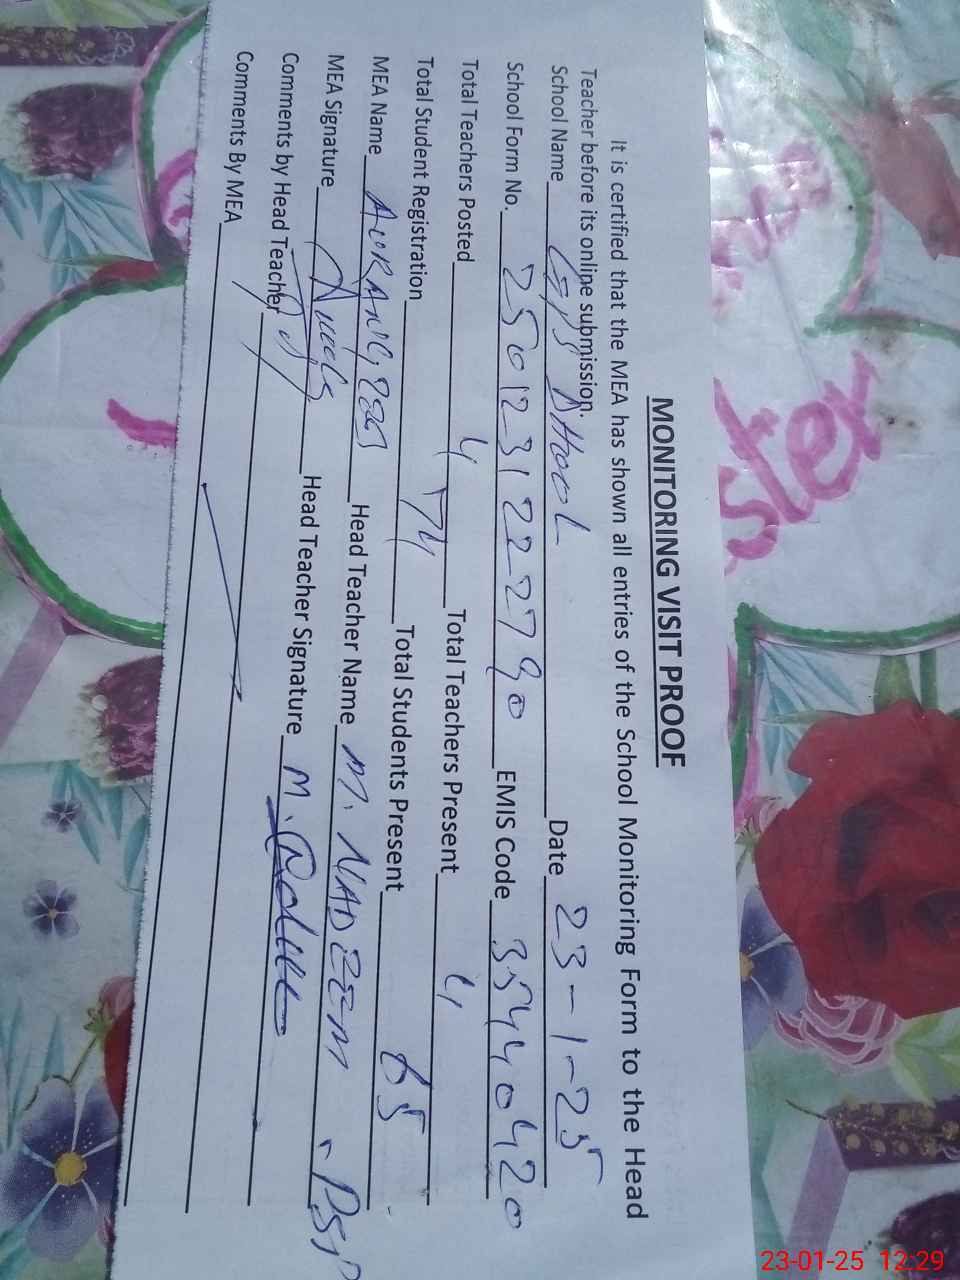 MONITORING VISIT PROOF
It is certified that the MEA has shown all entries of the School Monitoring Form to the Head
Teacher before its online submission.
School Name GPS DHOOL Date 23-1-25
School Form No. 2501231222790 EMIS Code 35440420
Total Teachers Posted 4 Total Teachers Present 4
Total Student Registration 74 Total Students Present 65
MEA Name AURANGZEB Head Teacher Name M. NADEEM , PST
MEA Signature Head Teacher Signature M.
Comments by Head Teacher
Comments By MEA
23-01-25 12:29